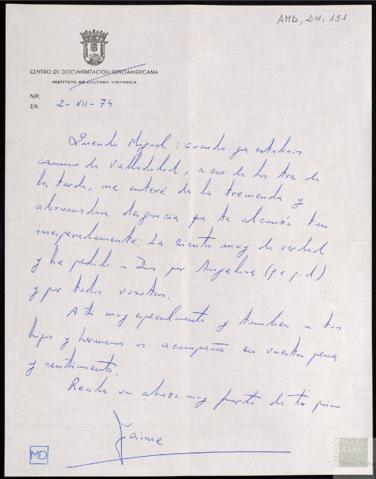 AMD, 24, 151
CENTRO DE DOCUMENTACION IBEROAMERICANA
INSTITUTO DE CULTURA HISPANICA
2-XII-74
Querido Miguel: cuando ya estabais
camino de Valladolid, a eso de las tres de
la tarde, me enteré de la tremenda y
abrumadora desgracia que te alcanzó tan
inesperadamente. Lo siento muy de verdad
y he pedido a Dios por Angelina (q e p d)
y por todos vosotros.
A ti muy especialmente y tambien a tus
hijos y hermanos os acompaño en vuestra pena
y sentimiento.
Recibe un abrazo muy fuerte de tu primo
Jaime
MD